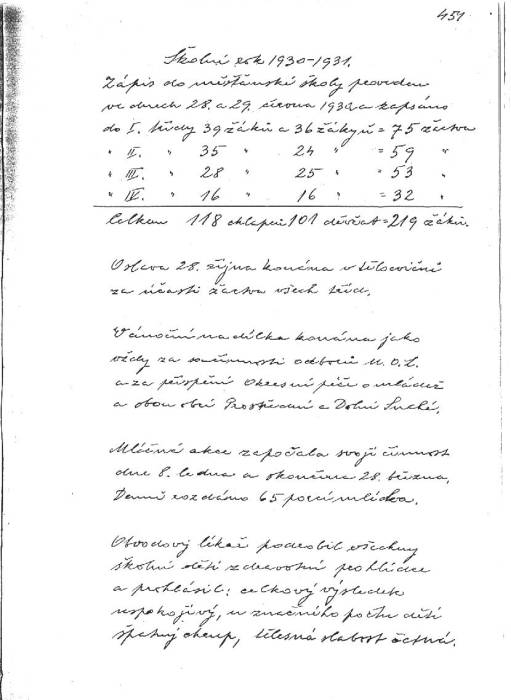 451
Školní rok 1930-1931.
Zápis do měšťanské školy proveden
ve dnech 28. a 29. června 1930 a zapsáno
do I. třídy 39 žáků a 36 žákyň = 75 žactva
" II. " 35 " 24 " = 59 "
" III. " 28 " 25 " = 53 "
" IV. " 16 " 16 " = 32 "
Celkem 118 chlapců 101 děvčat = 219 žáků.
Oslava 28. října konána v tělocvičně
za účasti žactva všech tříd.
Vánoční nadílka konána jako
vždy za součinnosti odborů M.O.L.
a za přispění Okresní péče o mládež
a obou obcí Prostřední a Dolní Suché.
Mléčná akce započala svoji činnost
dne 8. ledna a skončena 28. března.
Denně rozdáno 65 porcí mléka.
Obvodový lékař podrobil všechny
školní děti zdravotní prohlídce
a prohlásil: celkový výsledek
uspokojivý, u značného počtu dětí
špatný chrup, tělesná slabost četná.